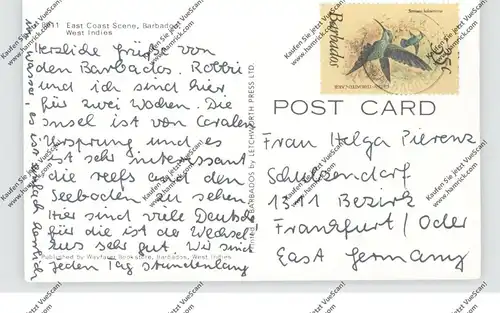 8011 East Coast Scene, Barbados
West Indies
Herzliche Grüße von
den Barbados. Robbi
und ich sind hier
für zwei Wochen. Die
Insel ist von Coralen
Ursprung und es
ist sehr interessant
die reefs und den
Seeboden zu sehen
Hier sind viele Deutsche
für die ist der Wechsel
aus sehr gut. Wir sind
jeden Tag stundenlang
Wasser, es ist einfach herrlich
Published by Wayfarer Bookstore, Barbados, West Indies
BARBADOS by LETCHWORTH PRESS LTD.
Barbados
POST CARD
Frau Helga Pierenz
Schulzendorf
1311 Bezirk
Frankfurt / Oder
East Germany
Kaufen Sie jetzt VueScan!
www.hamrick.com